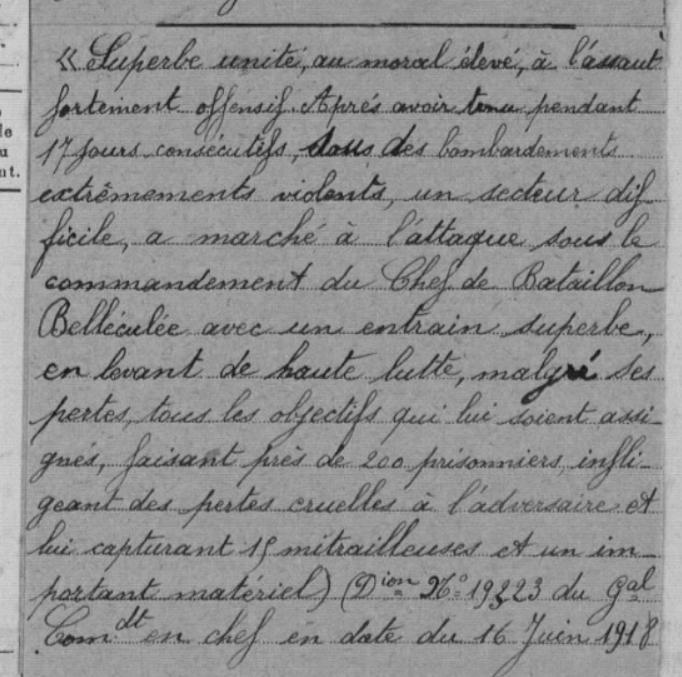 « Superbe unité, au moral élevé, à l'assaut
fortement offensif. Aprés avoir tenu pendant
17 jours consécutifs, sous des bombardements
extrêmements violents, un secteur dif-
ficile, a marché à l'attaque sous le
commandement du Chef de Bataillon
Belléculée avec un entrain superbe,
en levant de haute lutte, malgré ses
pertes, tous les objectifs qui lui soient assi-
gnés, faisant près de 200 prisonniers, infli-
geant des pertes cruelles à l'adversaire et
lui capturant 15 mitrailleuses et un im-
portant matériel) (Dion No 19323 du Gal
Comdt en chef en date du 16 Juin 1918